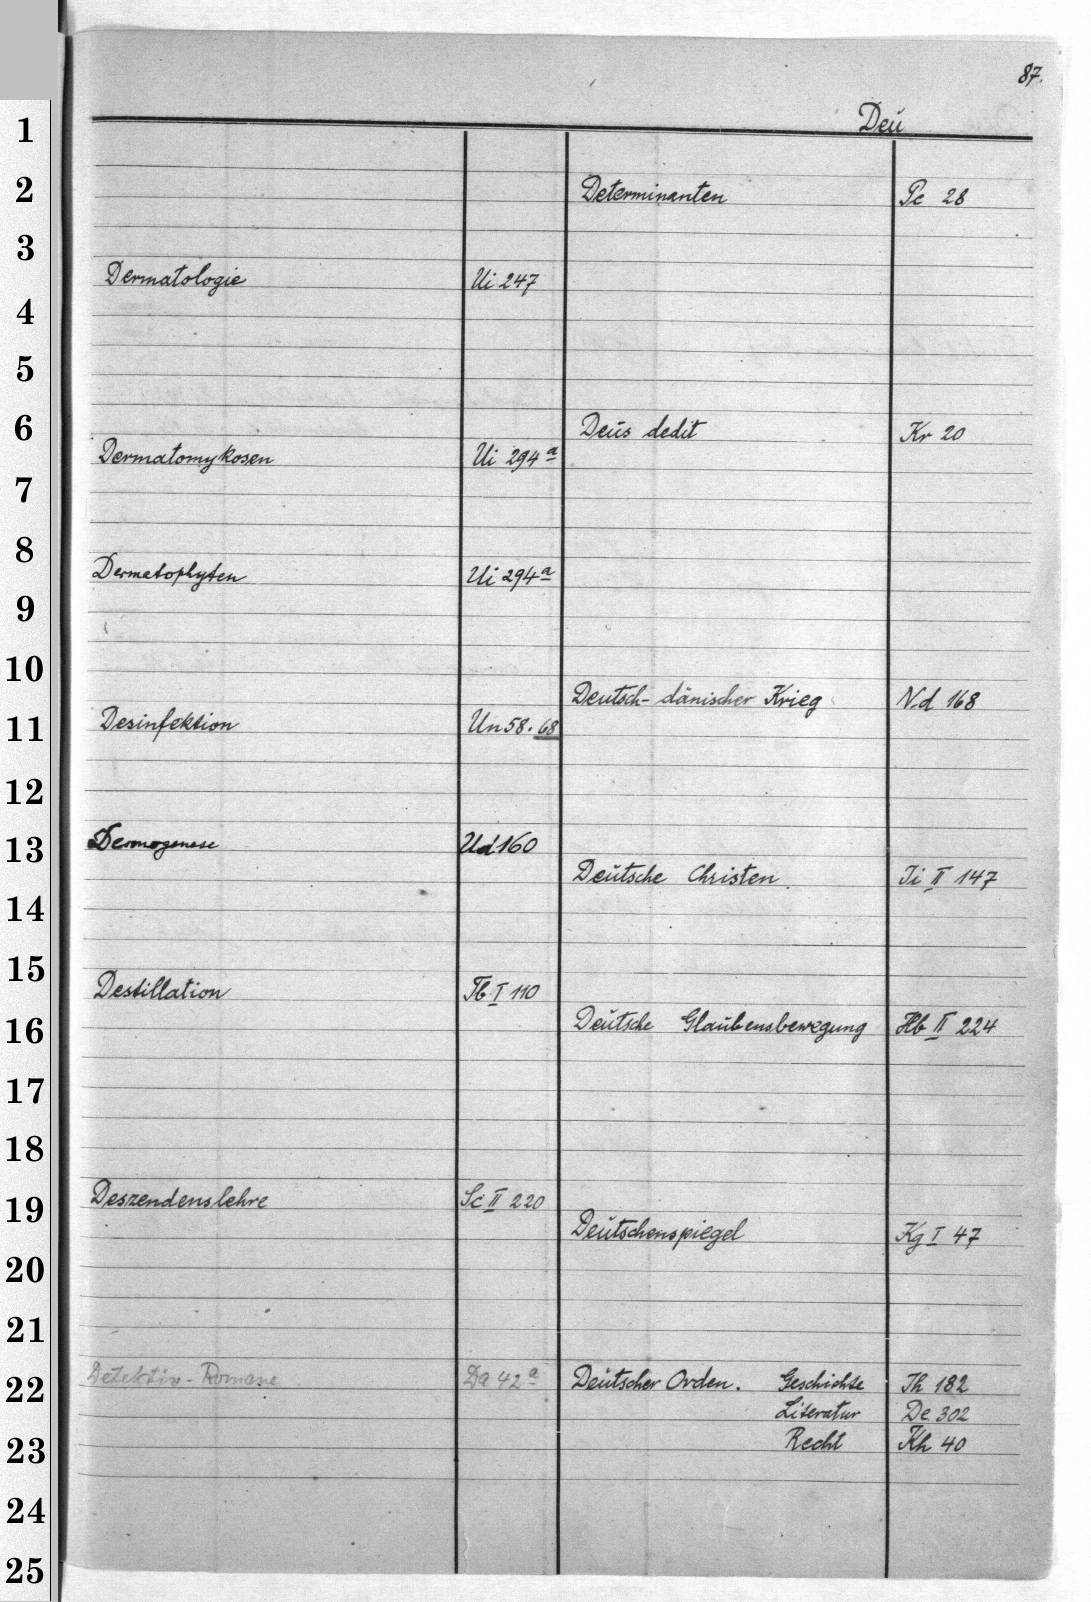 87.
Deu
Dermatologie Ui 247
Dermatomykosen Ui 294 a
Dermatophyten Ui 294 a
Desinfektion Un 58. 68
Dermogenese Ud 160
Destillation Tb I 110
Deszendenslehre Sc II 220
Detektiv-Romane Da 42 a
Determinanten Pc 28
Deus dedit Kr 20
Deutsch-dänischer Krieg Nd 168
Deutsche Christen Ti II 147
Deutsche Glaubensbewegung Hb II 224
Deutschenspiegel Kg I 47
Deutscher Orden. Geschichte Th 182
Literatur De 302
Recht Kh 40
1
2
3
4
5
6
7
8
9
10
11
12
13
14
15
16
17
18
19
20
21
22
23
24
25